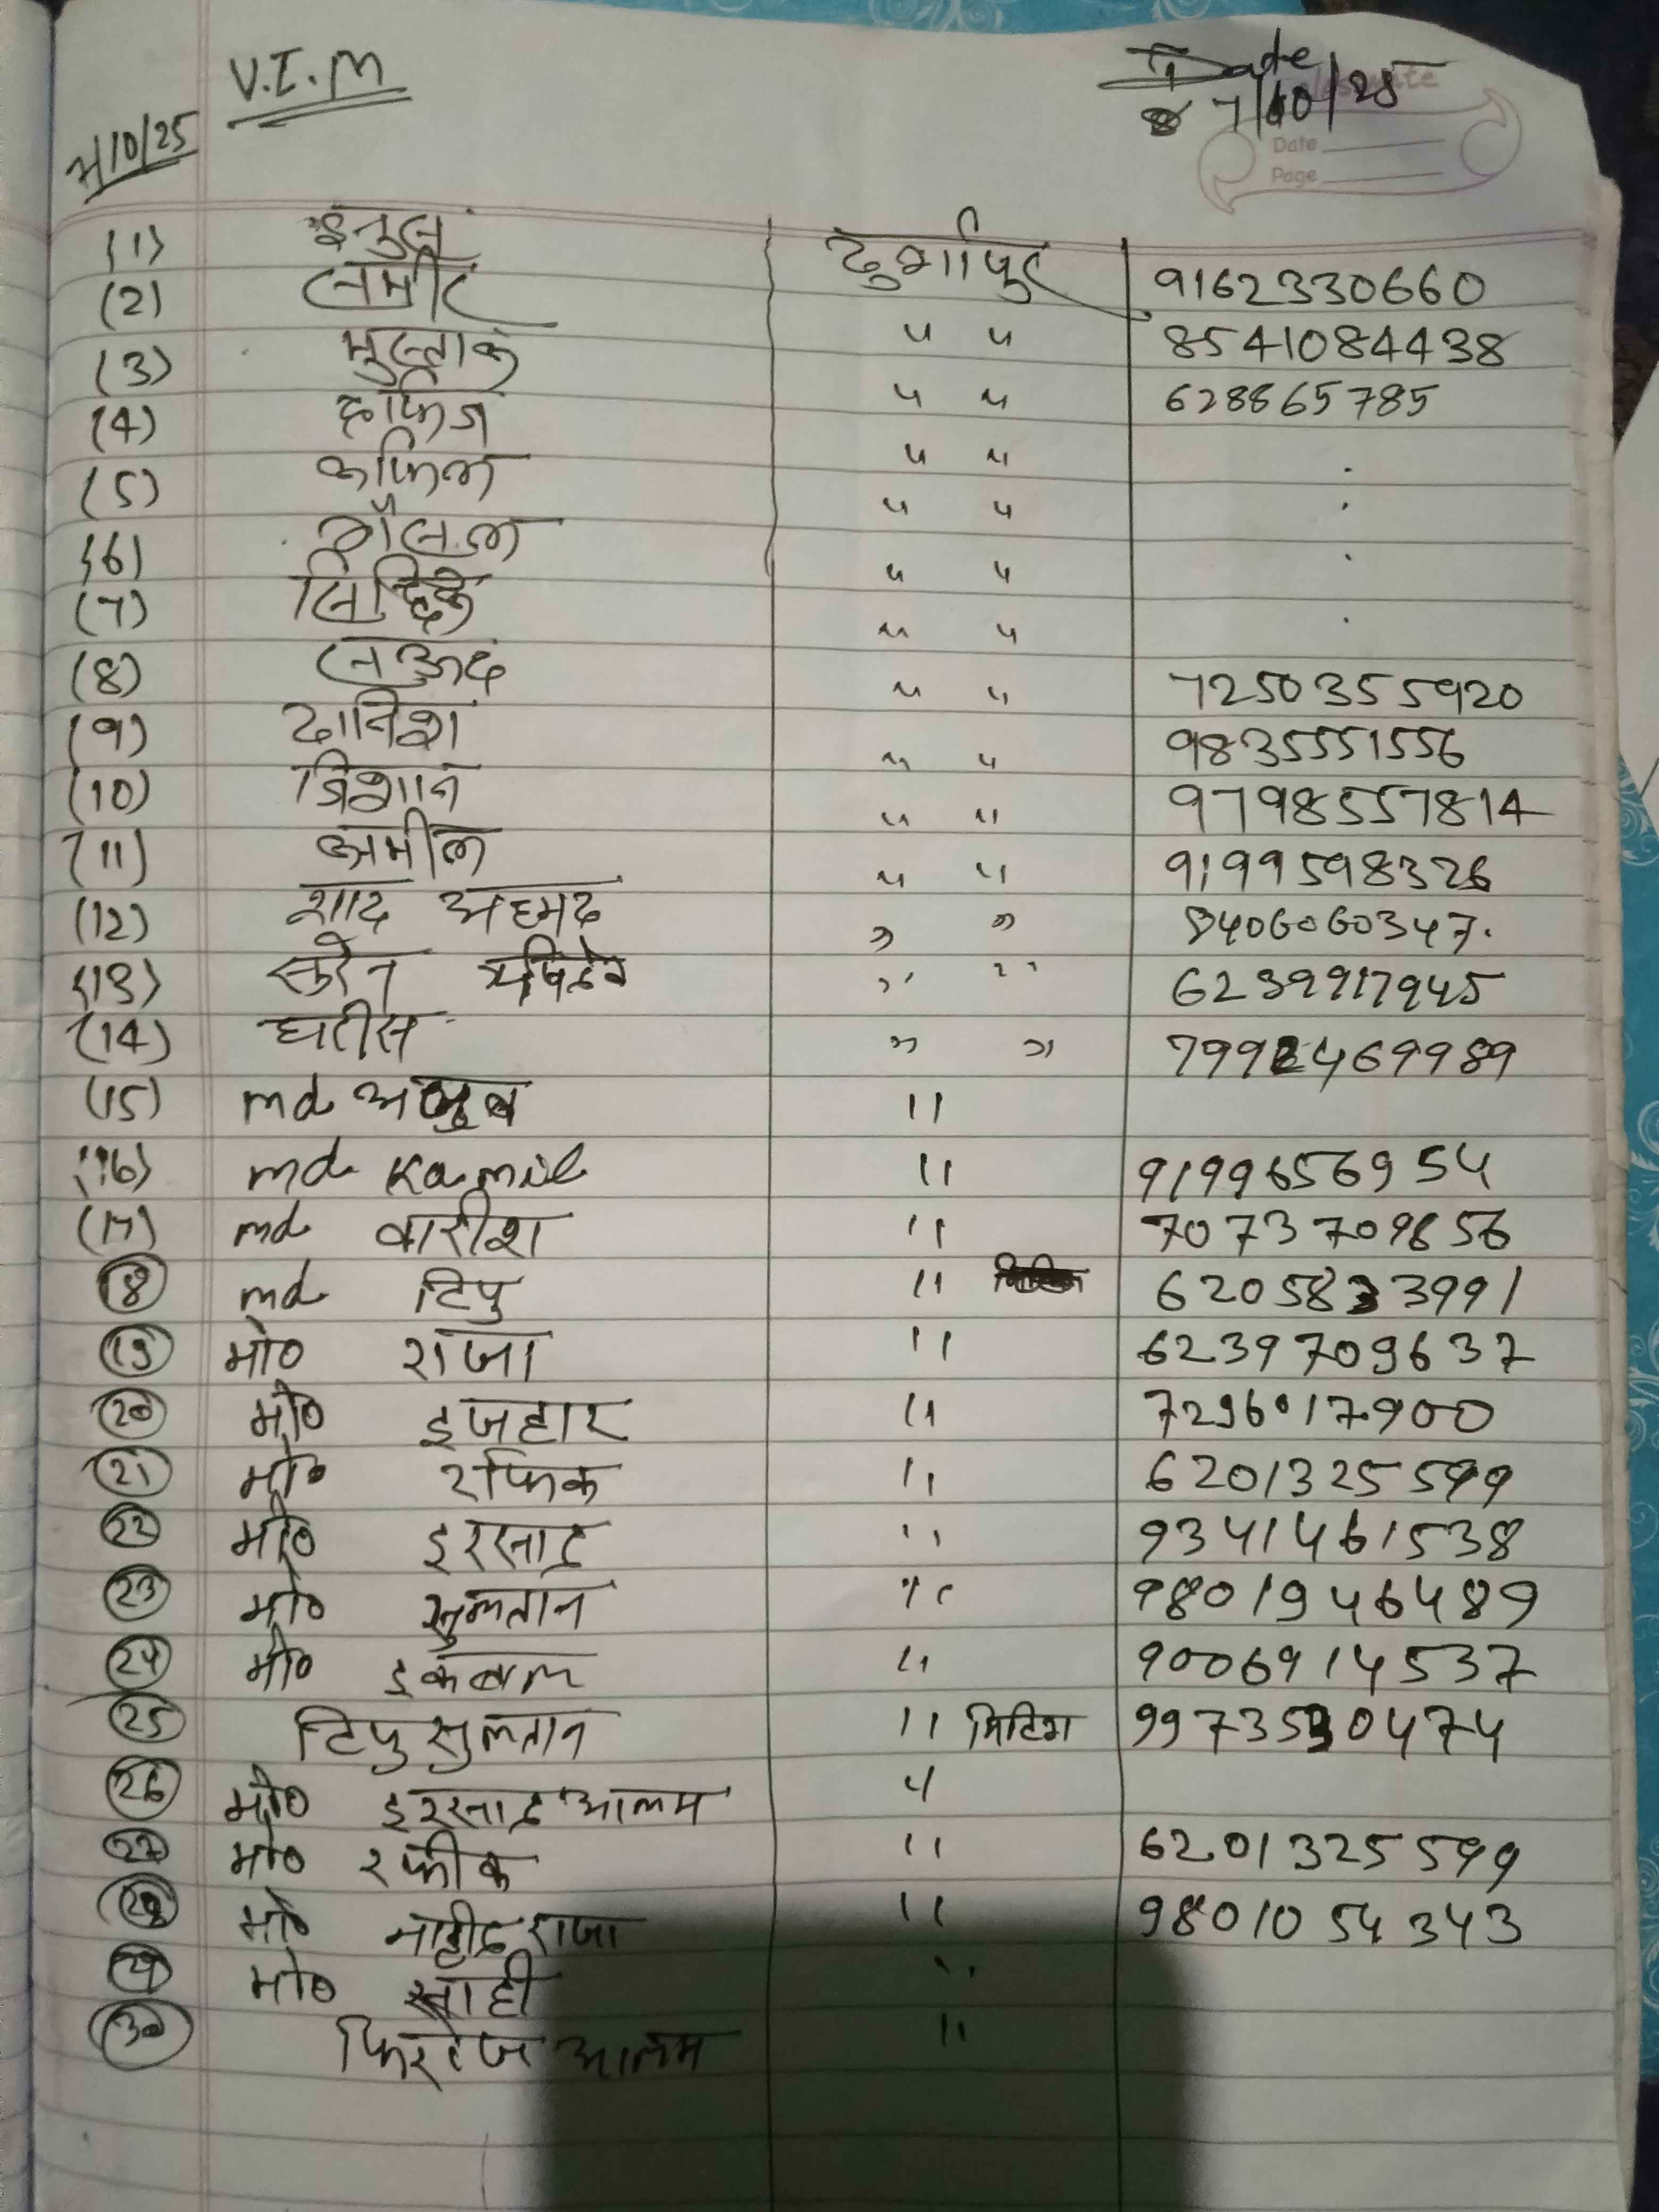 V.I.M
Date
7/10/25
7/10/25
Date
Page
(1) दुर्गापुर 9162330660
(2) समीर " " 8541084438
(3) मुस्ताक " " 628865785
(4) हाफिज " "
(5) कफिल " "
(6) " "
(7) सिद्दिक " "
(8) सऊद " " 7250355920
(9) दानिश " " 9835551556
(10) जिशान " " 9798557814
(11) जमील " " 9199598326
(12) शाद अहमद " " 8406060347.
(13) " " 6239917945
(14) " "
(15) md "
(16) md Kamil " 9199656954
(17) md वारीश " 7073709856
(18) md टिपु " 6205833991
(19) मो० राजा " 6239709637
(20) मो० इजहार " 7296017900
(21) मो० रफिक " 6201325599
(22) मो० इरसाद " 9341461538
(23) मो० सुलतान " 9801946489
(24) मो० इकबाल " 9006914537
(25) टिपु सुलतान " 9973530474
(26) मो० इरसाद आलम "
(27) मो० रफीक " 6201325599
(28) मो० राजा " 9801054343
(29) मो० साही "
(30) आलम "